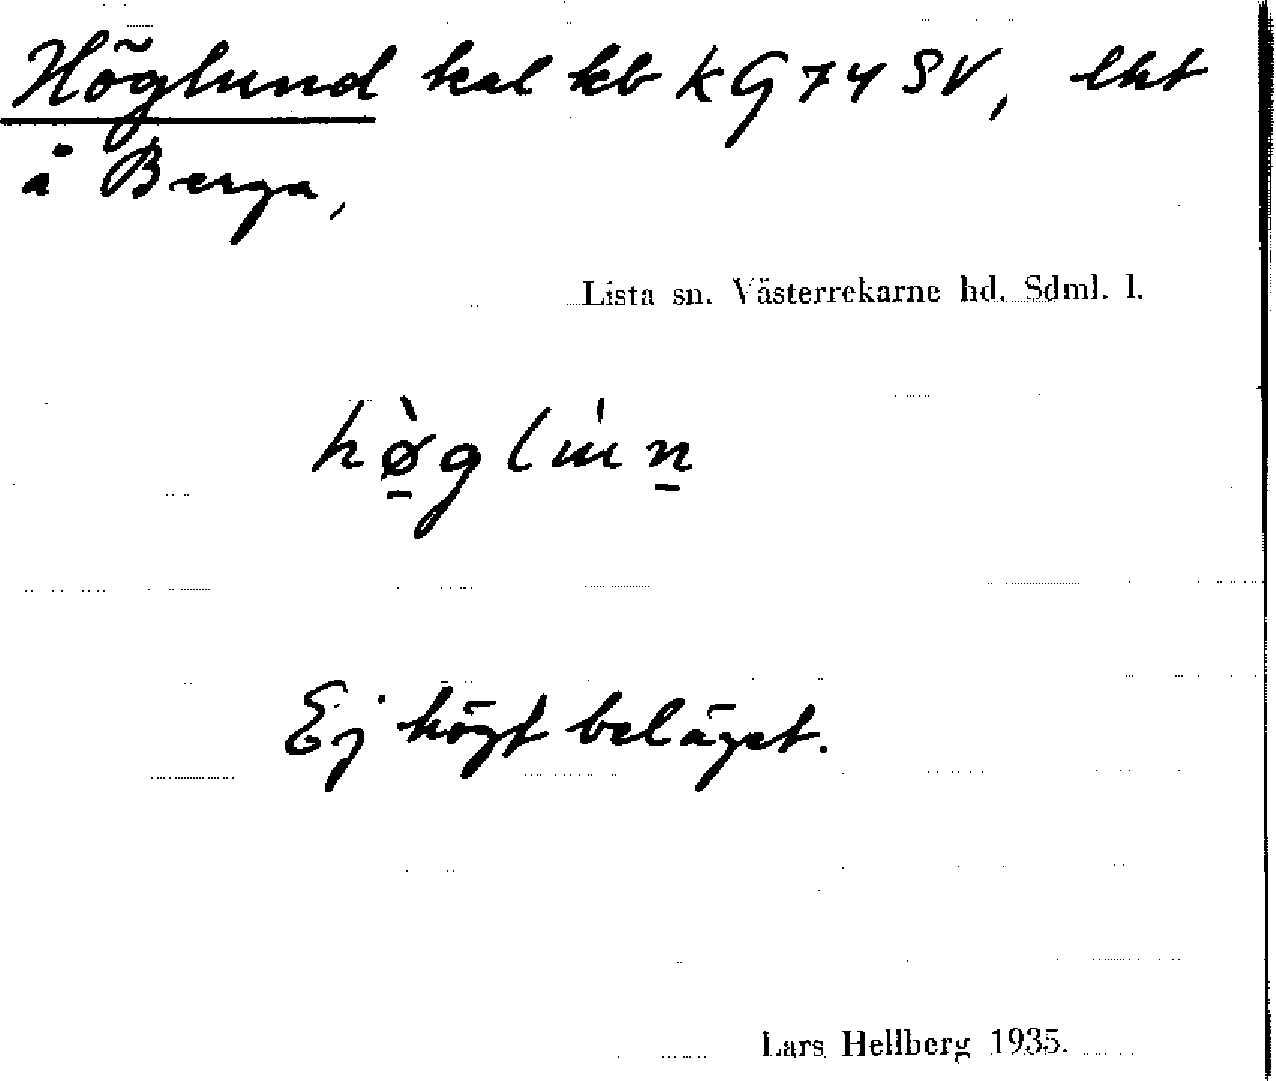 Höglund kal kb KG 74 SV, lht
å Berga,
Lista sn. Västerrekarne hd. Sdml. l.
hø̀glu̇n
Ej högt beläget.
Lars Hellberg 1935.